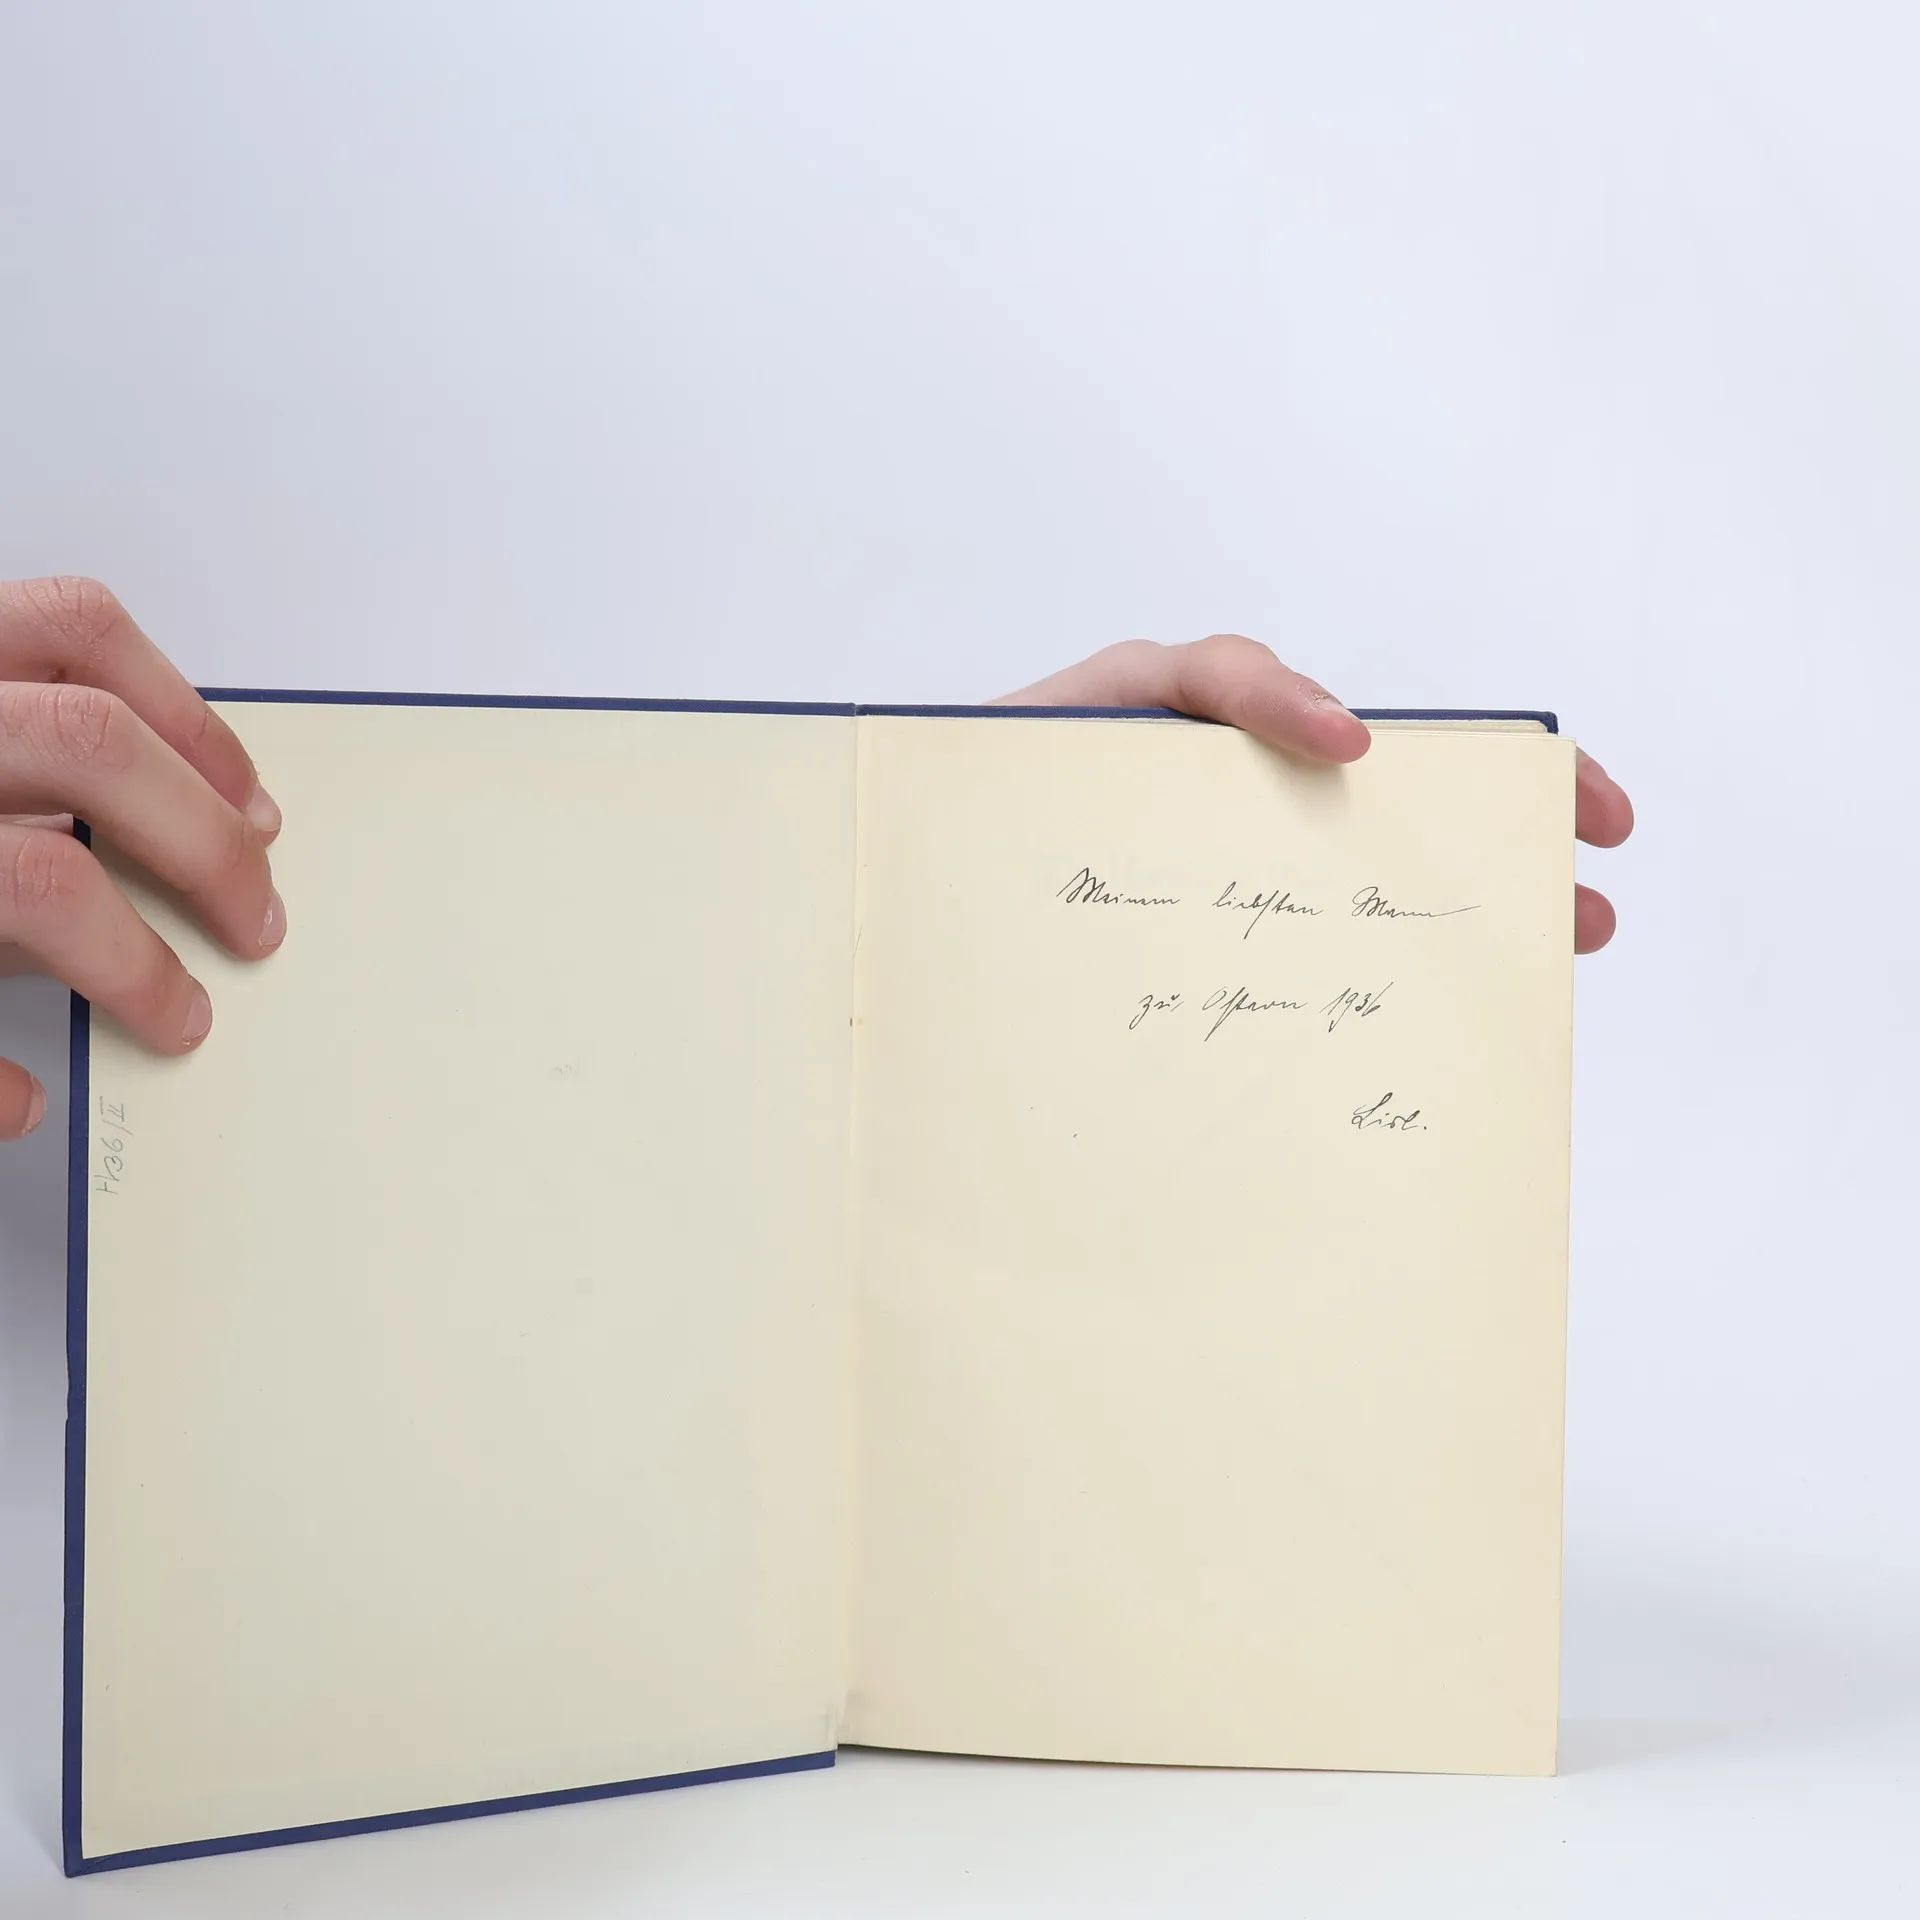 Meinem liebsten Mann
zu Ostern 1936
Lisl.